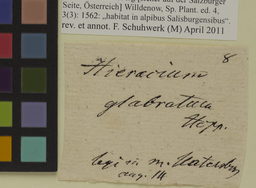 Seite, Österreich] Willdenow, Sp. Plant. ed. 4,
3(3): 1562: „habitat in alpibus Salisburgensibus“.
rev. et annot. F. Schuhwerk (M) April 2011
8
Hieracium
glabratum
Hopp.
legi in m.
aug.